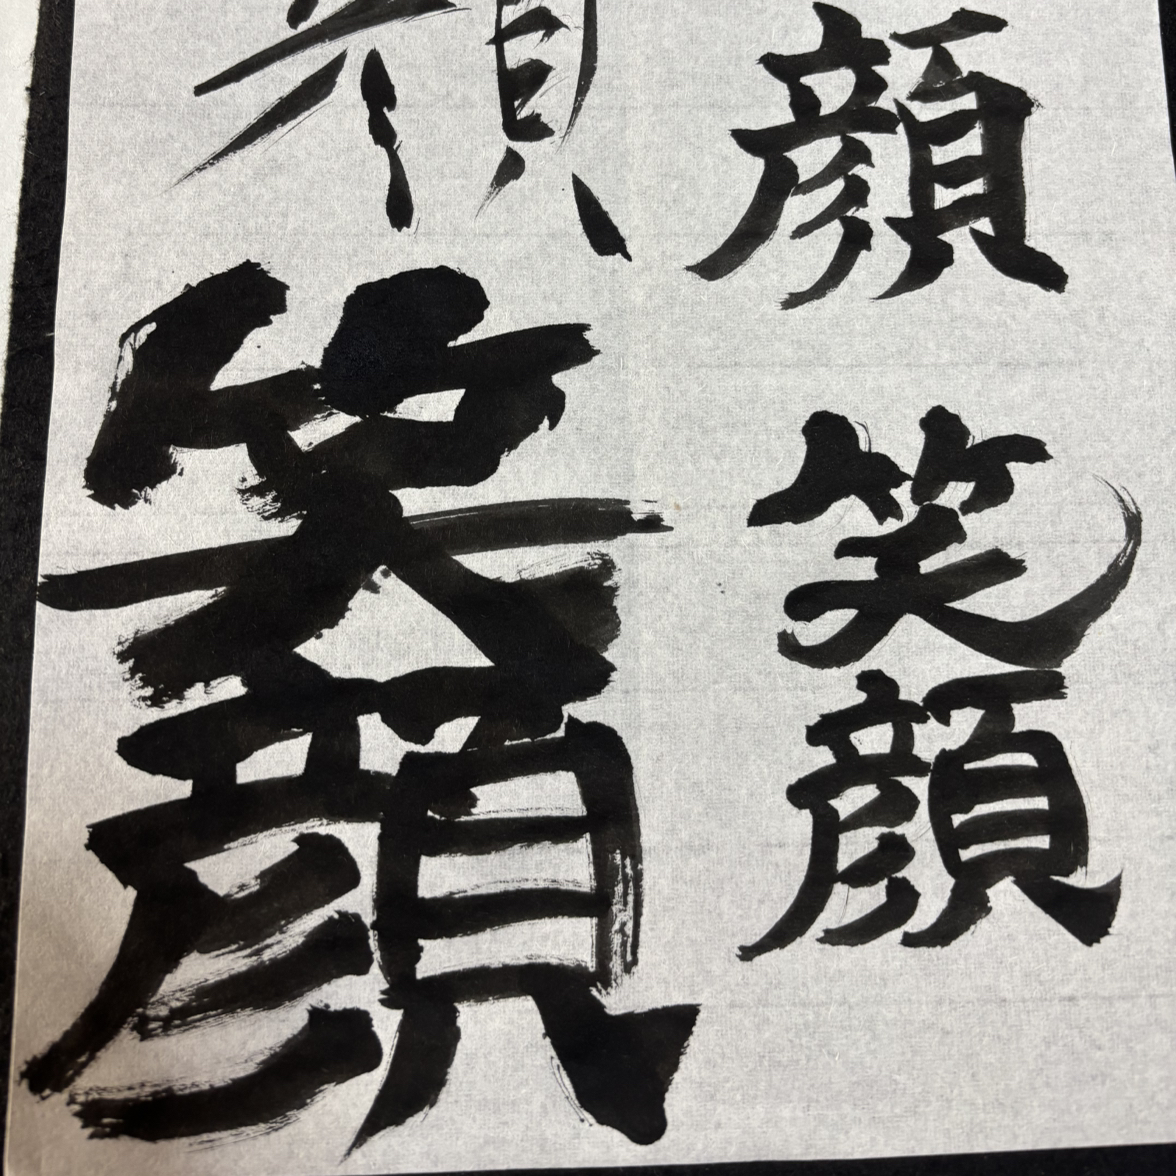 顔笑顔
顔笑顔